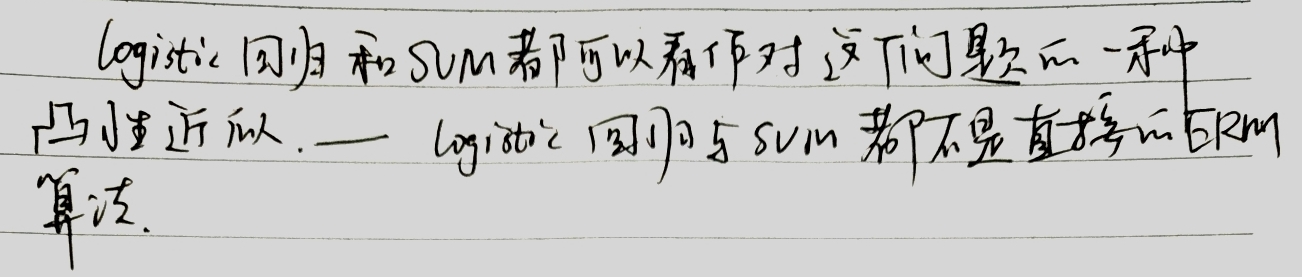 logistic 回归和SVM都可以看作对这个问题的一种
凸性近似. — logistic 回归与SVM都不是直接的ERM
算法.